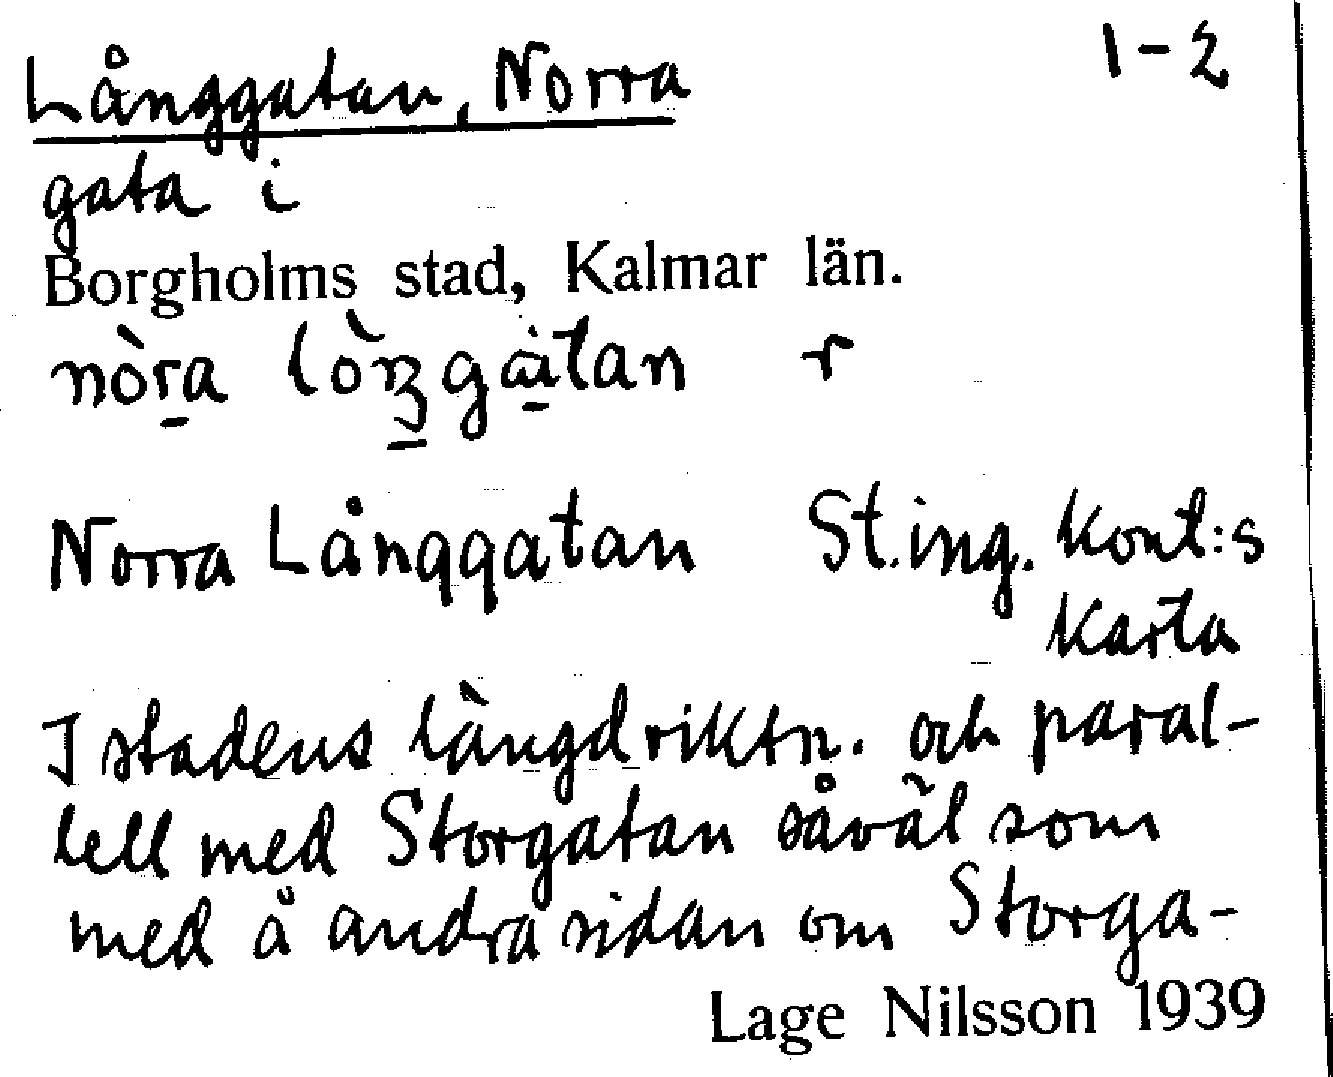 Långgatan, Norra 1-2
gata i
Borgholms stad, Kalmar län.
nòra lòŋgàtan r
Norra Långgatan St.ing.kont:s
karta
I stadens längdriktn. och paral-
lell med Storgatan såväl som
med å andra sidan om Storga-
Lage Nilsson 1939